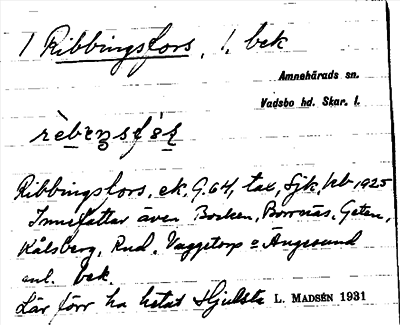 1 Ribbingsfors, 1. bek
Amnehärads sn.
Vadsbo hd. Skar. l.
Ribbingsfors, ek, G.64, tax, Sjk, kb 1925
Innefattar även Backen, Borrås, Geten,
Kålsberg, Rud, Vaggetorp o Ängesund
enl. bek.
Lär förr ha hetat Hjulsta L. MADSÉN 1931